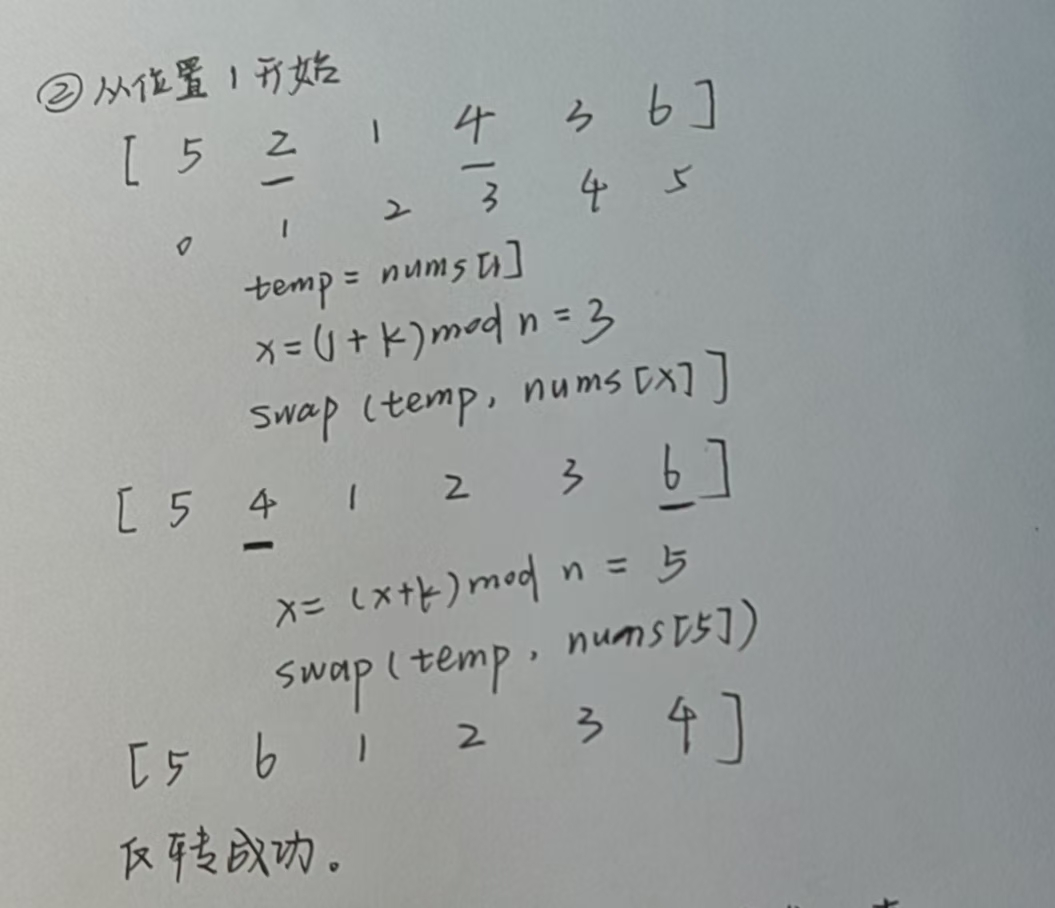 ②从位置1开始
[ 5 2 1 4 3 6 ]
0 1 2 3 4 5
temp = nums[1]
x = (1 + k) mod n = 3
swap (temp, nums[x]]
[ 5 4 1 2 3 6 ]
x = (x+k) mod n = 5
swap (temp, nums[5])
[ 5 6 1 2 3 4 ]
反转成功。